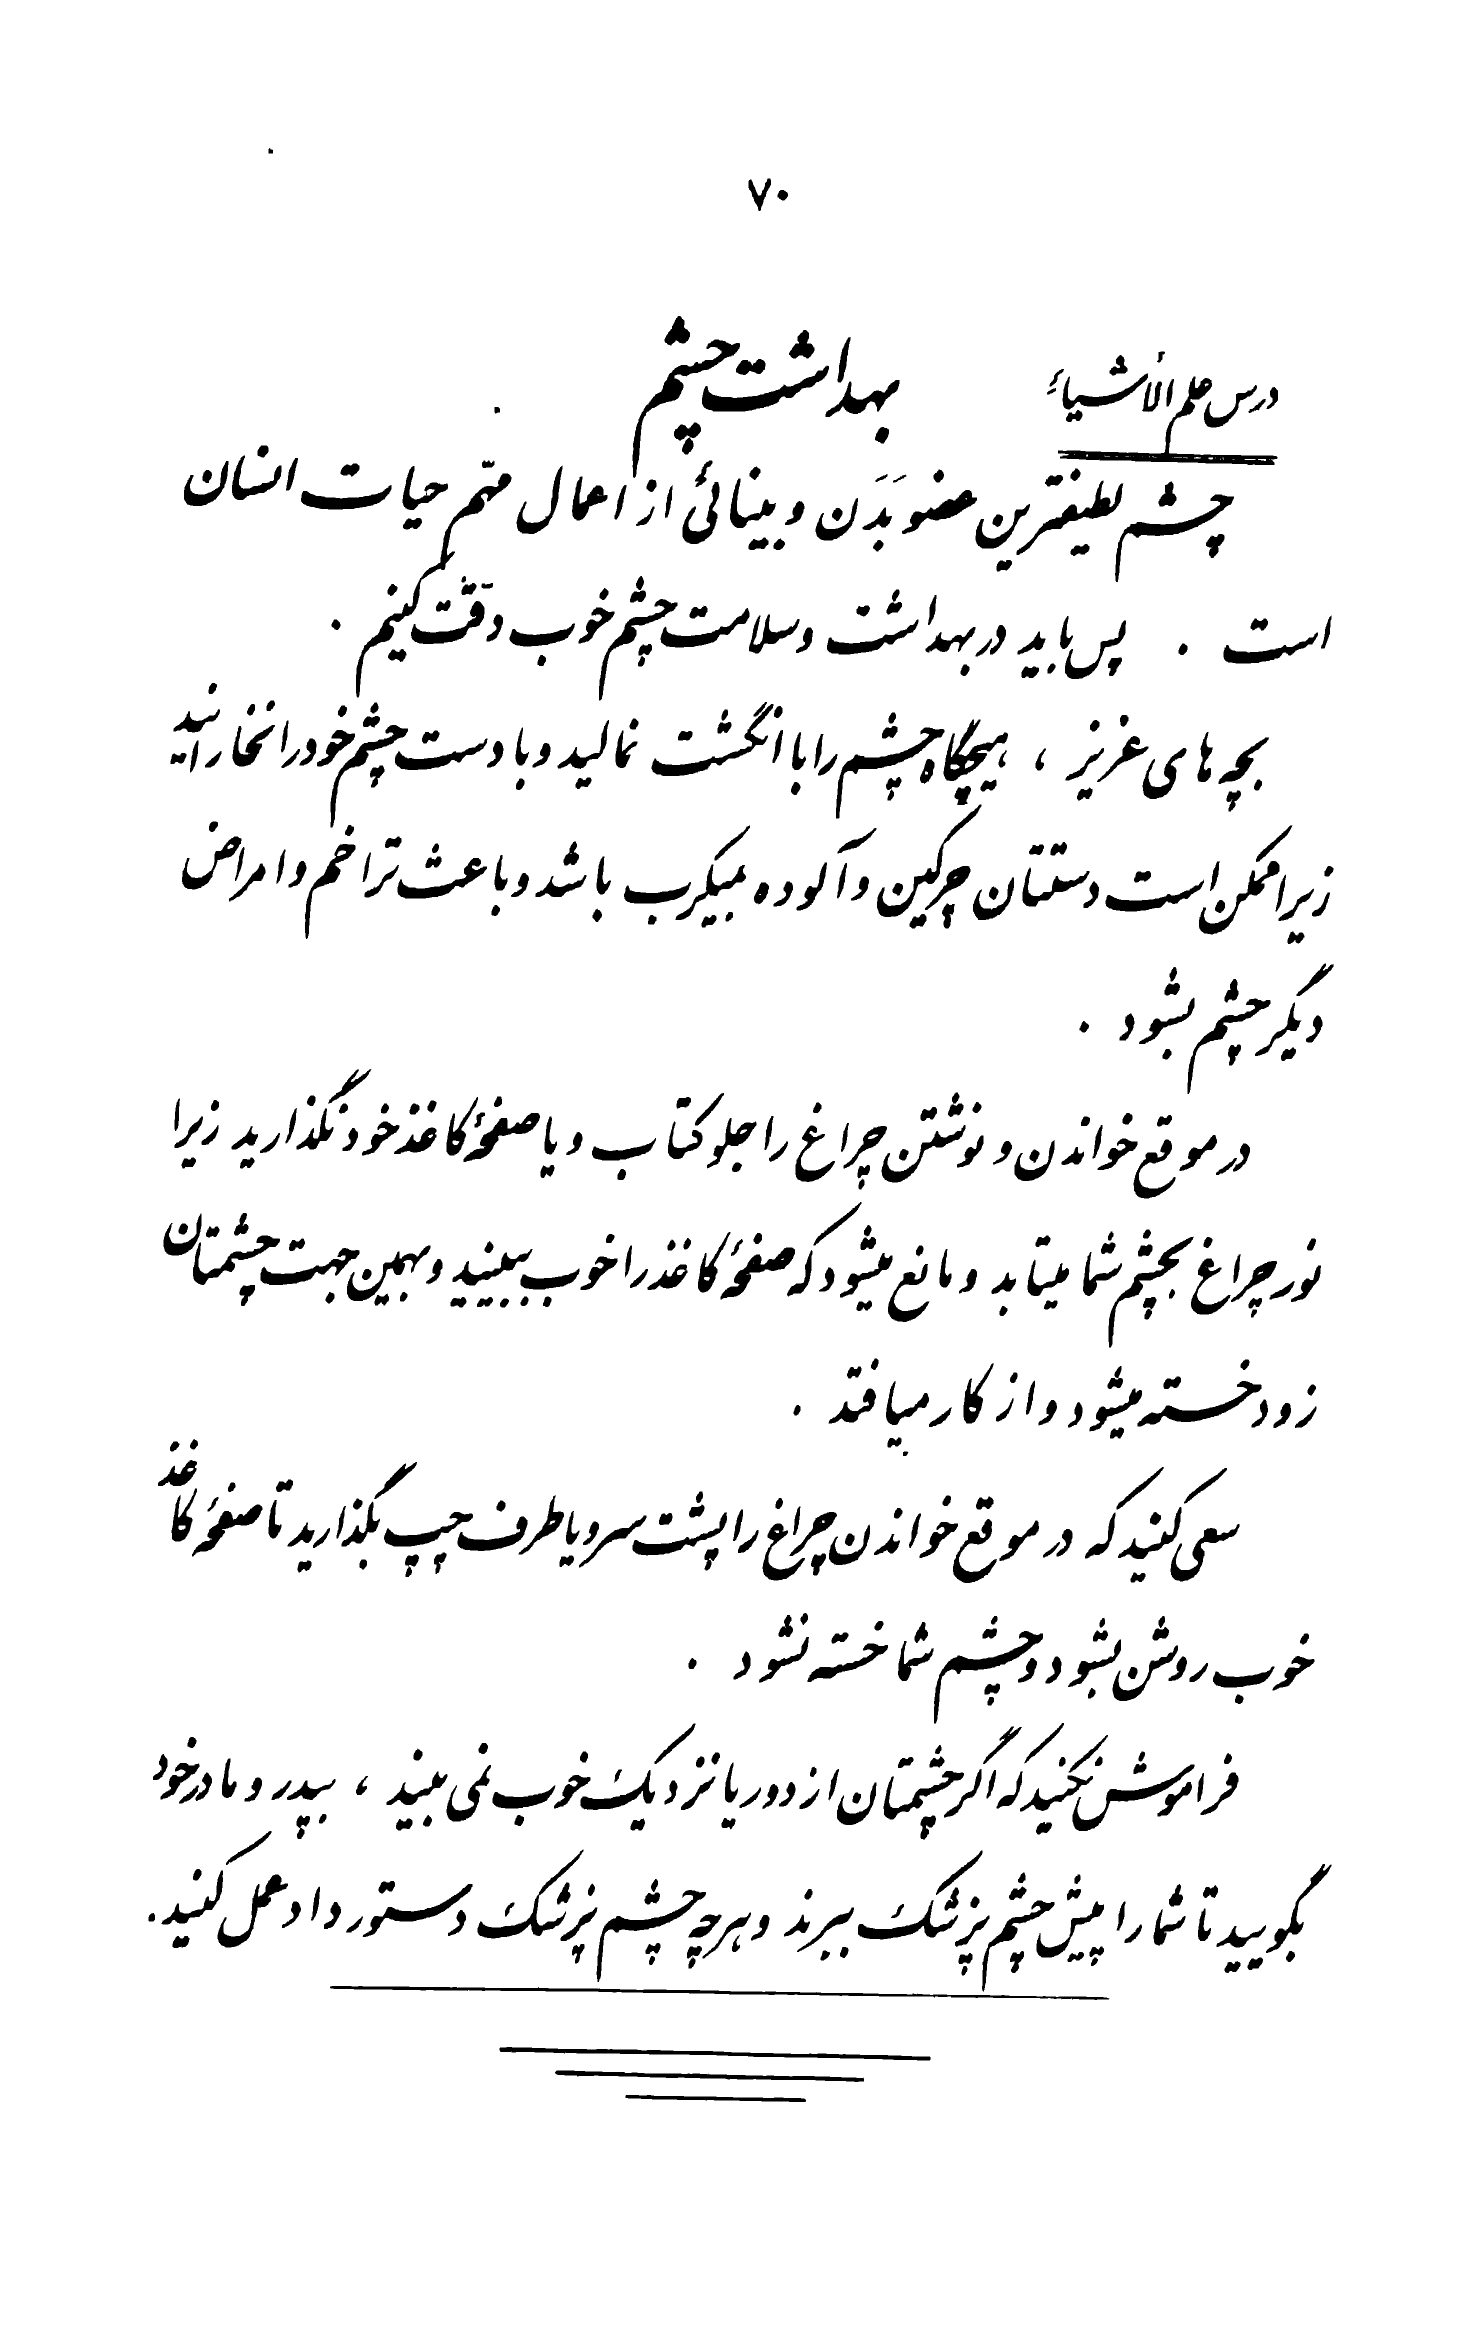 ۷۰
درس علم الأشیاءِ
بهداشت چشم
چشم لطیفترین عضو بَدَن و بینائی از اعمال مهّم حیات انسان
است . پس باید در بهداشت و سلامت چشم خوب دقّت کنیم .
بچه های عزیز ، هیچگاه چشم را با انگشت نمالید و با دست چشم خود را نخارانید
زیرا ممکن است دستتان چرکین و آلوده بمیکرب باشد و باعث تراخم و امراض
دیگر چشم بشود .
در موقع خواندن و نوشتن چراغ را جلو کتاب و یا صفحهٔ کاغذ خود نگذارید زیرا
نور چراغ بچشم شما میتابد و مانع میشود که صفحهٔ کاغذ را خوب ببینید و بهمین جهت چشمتان
زود خسته میشود و از کار میافتد .
سعی کنید که در موقع خواندن چراغ را پشت سر و یا طرف چپ بگذارید تا صفحهٔ کاغذ
خوب روشن بشود و چشم شما خسته نشود .
فراموش نکنید که اگر چشمتان از دور یا نزدیک خوب نمی بیند ، بپدر و مادر خود
بگویید تا شما را پیش چشم پزشک ببرند و هرچه چشم پزشک دستور داد عمل کنید.